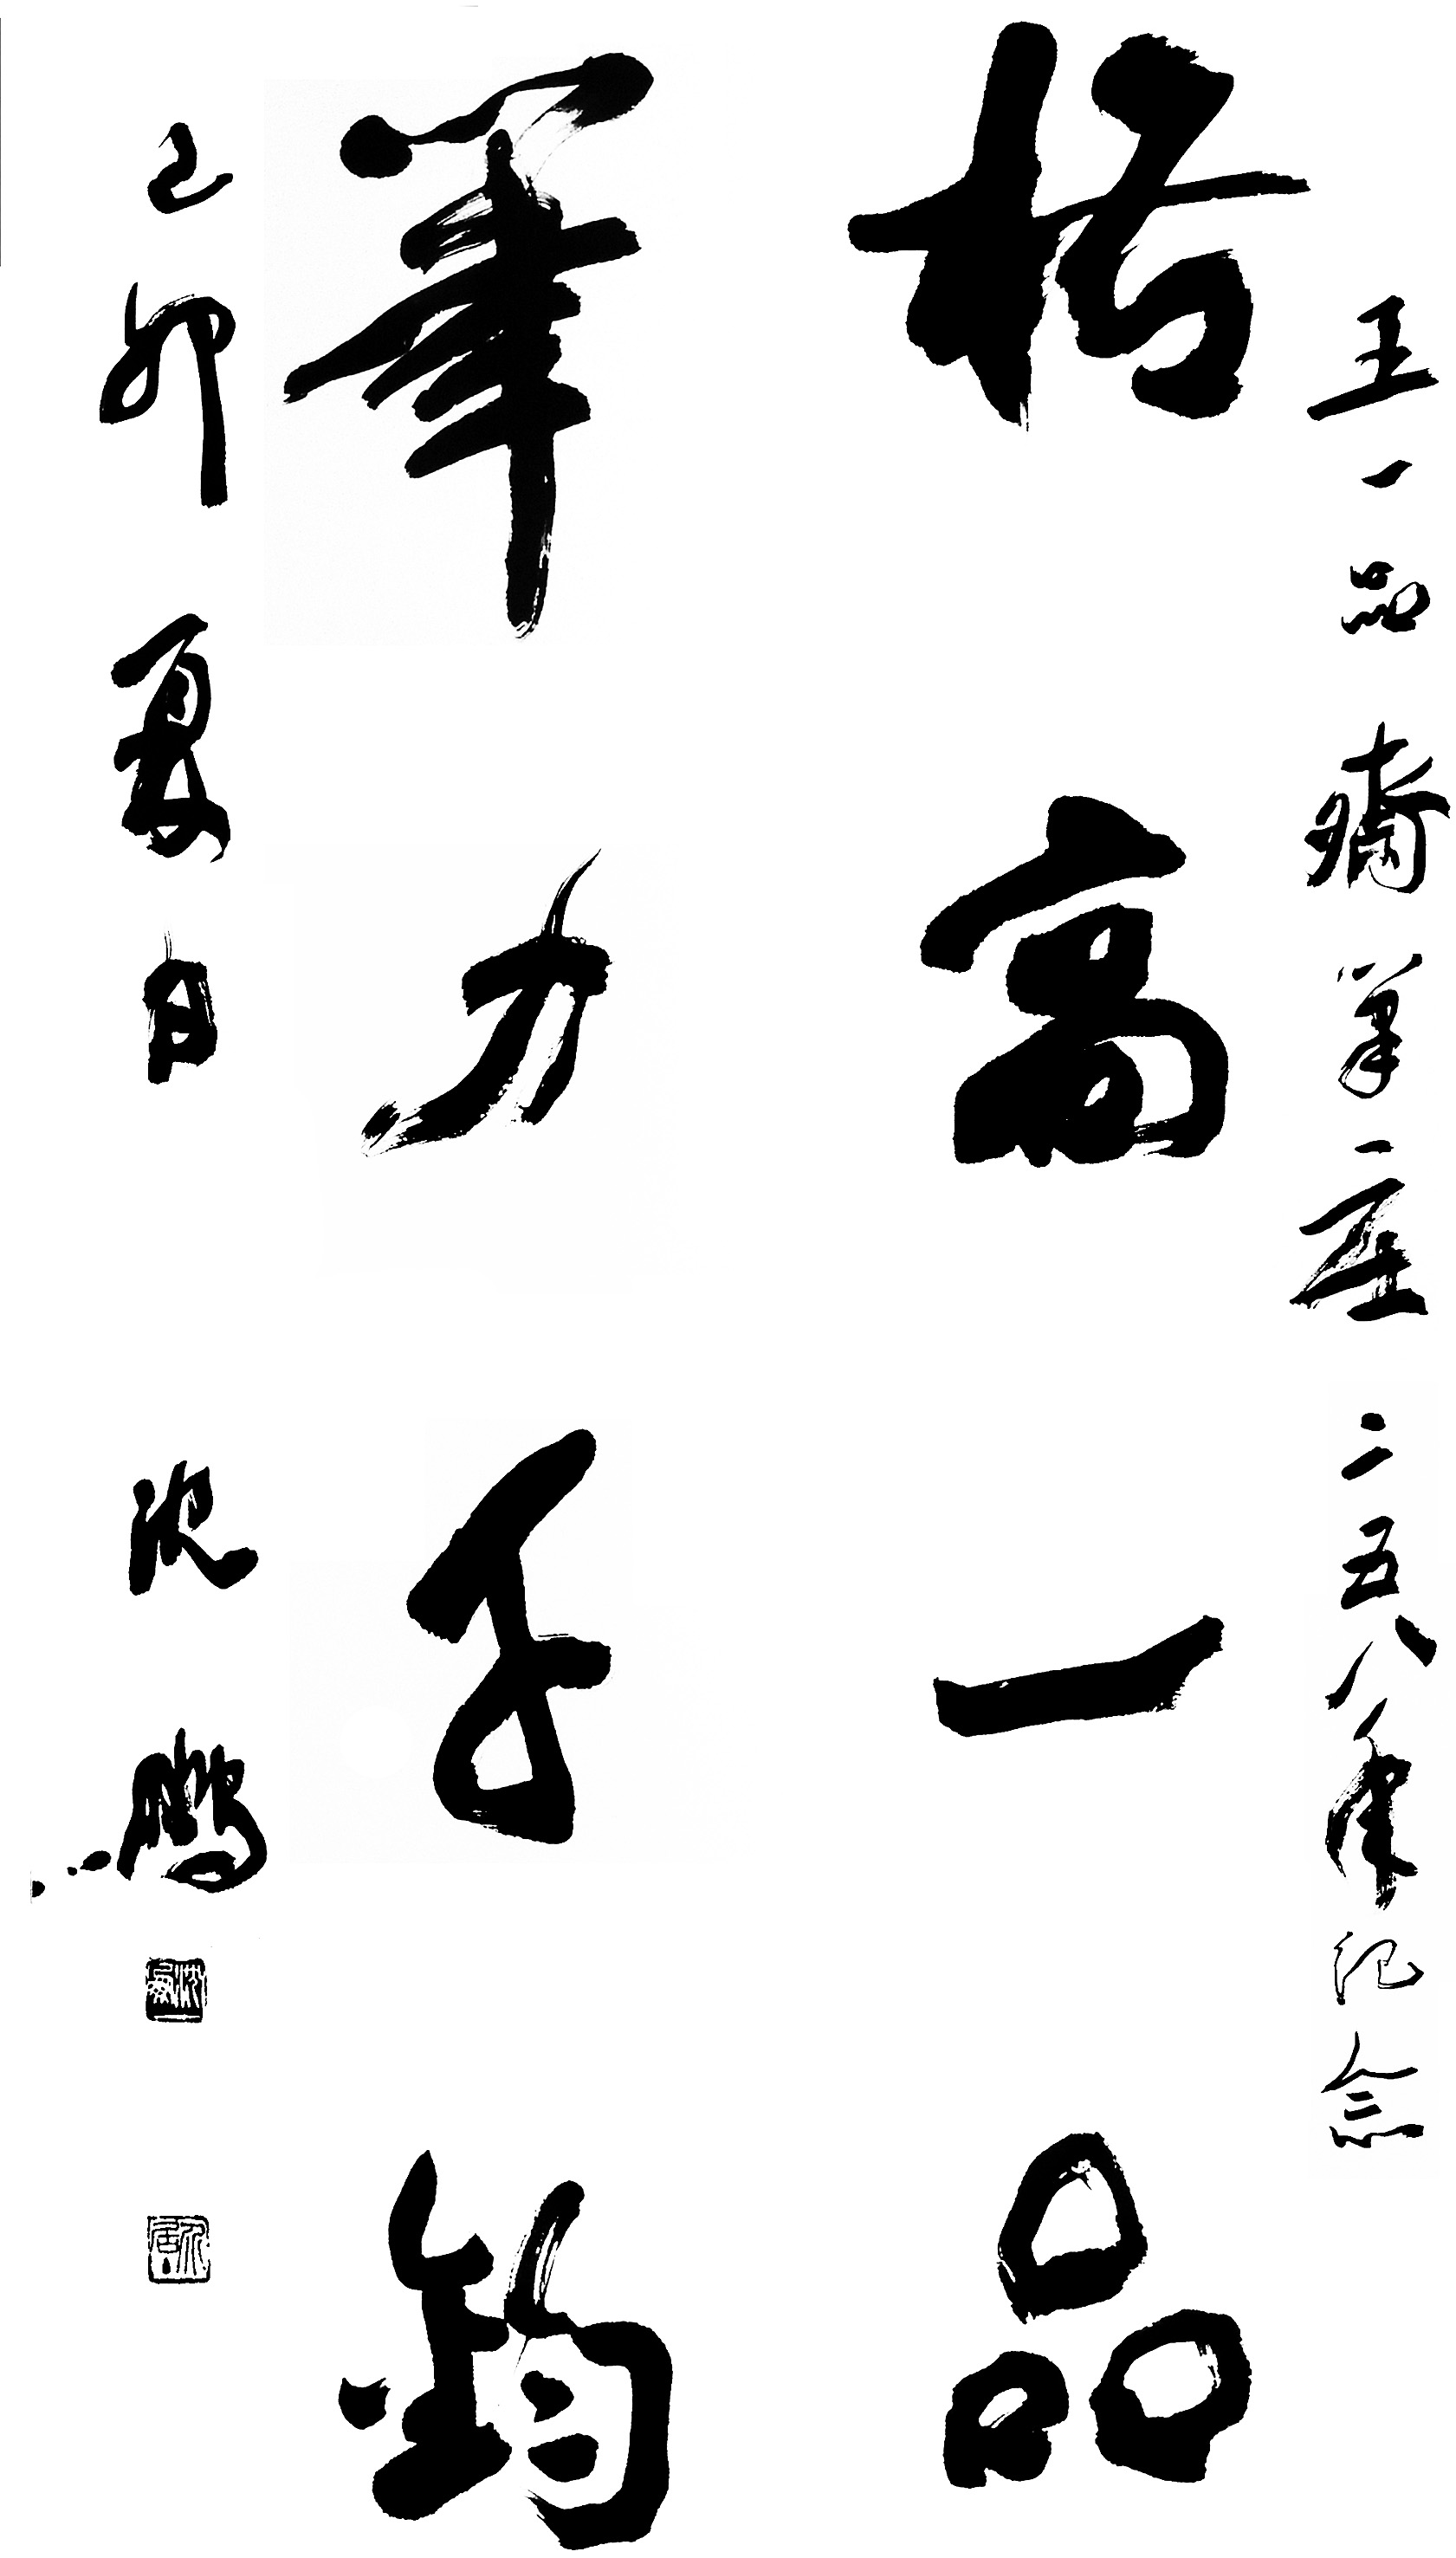 王一品斋笔庄二五八年纪念
格高一品
筆力千鈞
己卯夏日沈鹏